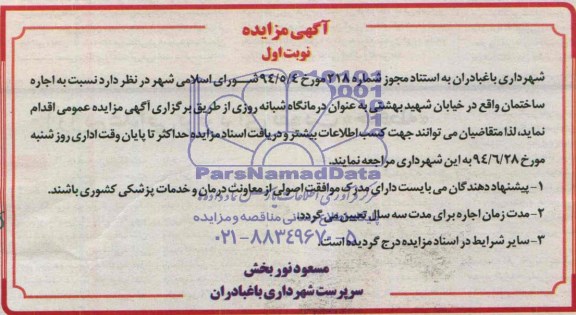 آگهی مزایده
نوبت اول
شهرداری باغبادران به استناد مجوز شماره ۲۱۸ مورخ ۹۴/۵/۴ شورای اسلامی شهر در نظر دارد نسبت به اجاره
ساختمان واقع در خیابان شهید بهشتی به عنوان درمانگاه شبانه روزی از طریق برگزاری آگهی مزایده عمومی اقدام
نماید، لذا متقاضیان می توانند جهت کسب اطلاعات بیشتر و دریافت اسناد مزایده حداکثر تا پایان وقت اداری روز شنبه
مورخ ۹۴/۶/۲۸ به این شهرداری مراجعه نمایند.
ParsNamadData
۱- پیشنهاد دهندگان می بایست دارای مدرک موافقت اصولی از معاونت درمان و خدمات پزشکی کشوری باشند.
۲- مدت زمان اجاره برای مدت سه سال تعیین می گردد.
۳- سایر شرایط در اسناد مزایده درج گردیده است.
۰۲۱-۸۸۳۴۹۶۷۰-۵
مسعود نوربخش
سرپرست شهرداری باغبادران